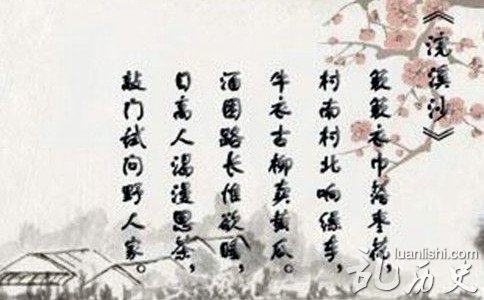 《浣溪沙》
簌簌衣巾落枣花，
村南村北响缲车，
牛衣古柳卖黄瓜。
酒困路长惟欲睡，
日高人渴漫思茶，
敲门试问野人家。
luanlishi.com
乱历史